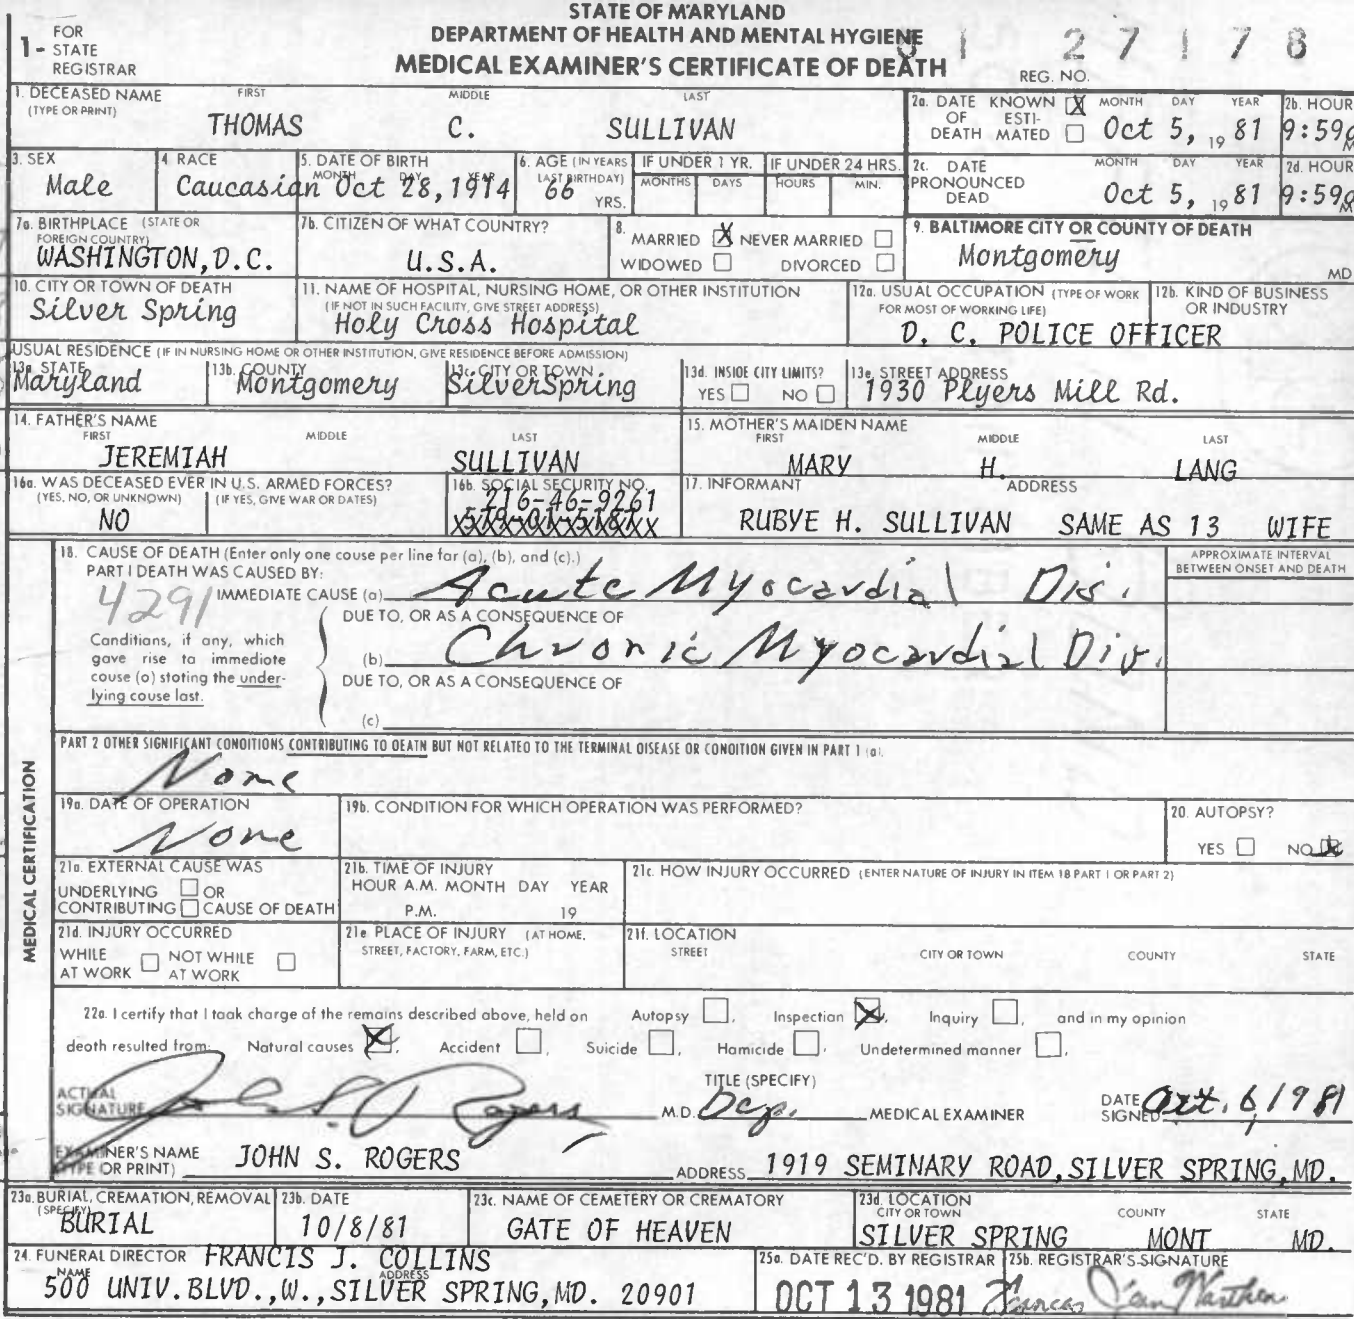 STATE OF MARYLAND
DEPARTMENT OF HEALTH AND MENTAL HYGIENE
MEDICAL EXAMINER'S CERTIFICATE OF DEATH
1 - FOR STATE REGISTRAR
REG. NO. 81 27178
1. DECEASED NAME (TYPE OR PRINT) FIRST MIDDLE LAST
THOMAS C. SULLIVAN
2a. DATE OF DEATH KNOWN X ESTIMATED MONTH DAY YEAR
Oct 5, 19 81
2b. HOUR
9:59a M
3. SEX
Male
4 RACE
Caucasian
5. DATE OF BIRTH MONTH DAY YEAR
Oct 28, 1914
6. AGE (IN YEARS LAST BIRTHDAY)
66 YRS.
IF UNDER 1 YR. MONTHS DAYS
IF UNDER 24 HRS. HOURS MIN.
2c. DATE PRONOUNCED DEAD MONTH DAY YEAR
Oct 5, 19 81
2d. HOUR
9:59a M
7a. BIRTHPLACE (STATE OR FOREIGN COUNTRY)
WASHINGTON, D.C.
7b. CITIZEN OF WHAT COUNTRY?
U.S.A.
8. MARRIED X NEVER MARRIED
WIDOWED DIVORCED
9. BALTIMORE CITY OR COUNTY OF DEATH
Montgomery MD
10. CITY OR TOWN OF DEATH
Silver Spring
11. NAME OF HOSPITAL, NURSING HOME, OR OTHER INSTITUTION
(IF NOT IN SUCH FACILITY, GIVE STREET ADDRESS)
Holy Cross Hospital
12a. USUAL OCCUPATION (TYPE OF WORK FOR MOST OF WORKING LIFE)
12b. KIND OF BUSINESS OR INDUSTRY
D. C. POLICE OFFICER
USUAL RESIDENCE (IF IN NURSING HOME OR OTHER INSTITUTION, GIVE RESIDENCE BEFORE ADMISSION)
13a STATE
Maryland
13b. COUNTY
Montgomery
13c. CITY OR TOWN
Silver Spring
13d. INSIDE CITY LIMITS?
YES NO
13e. STREET ADDRESS
1930 Plyers Mill Rd.
14. FATHER'S NAME FIRST MIDDLE LAST
JEREMIAH SULLIVAN
15. MOTHER'S MAIDEN NAME FIRST MIDDLE LAST
MARY H. LANG
16a. WAS DECEASED EVER IN U.S. ARMED FORCES?
(YES, NO, OR UNKNOWN) (IF YES, GIVE WAR OR DATES)
NO
16b. SOCIAL SECURITY NO.
216-46-9261
17. INFORMANT ADDRESS
RUBYE H. SULLIVAN SAME AS 13 WIFE
MEDICAL CERTIFICATION
18. CAUSE OF DEATH (Enter only one cause per line for (a), (b), and (c).)
PART I DEATH WAS CAUSED BY:
APPROXIMATE INTERVAL BETWEEN ONSET AND DEATH
4291
IMMEDIATE CAUSE (a) Acute Myocardial Dis.
DUE TO, OR AS A CONSEQUENCE OF
Conditions, if any, which gave rise to immediate cause (a) stating the underlying cause last.
(b) Chronic Myocardial Dis.
DUE TO, OR AS A CONSEQUENCE OF
(c)
PART 2 OTHER SIGNIFICANT CONDITIONS CONTRIBUTING TO DEATH BUT NOT RELATED TO THE TERMINAL DISEASE OR CONDITION GIVEN IN PART 1 (a).
None
19a. DATE OF OPERATION
None
19b. CONDITION FOR WHICH OPERATION WAS PERFORMED?
20. AUTOPSY?
YES NO X
21a. EXTERNAL CAUSE WAS
UNDERLYING OR
CONTRIBUTING CAUSE OF DEATH
21b. TIME OF INJURY
HOUR A.M. MONTH DAY YEAR
P.M. 19
21c. HOW INJURY OCCURRED (ENTER NATURE OF INJURY IN ITEM 18 PART 1 OR PART 2)
21d. INJURY OCCURRED
WHILE AT WORK NOT WHILE AT WORK
21e PLACE OF INJURY (AT HOME, STREET, FACTORY, FARM, ETC.)
21f. LOCATION
STREET CITY OR TOWN COUNTY STATE
22a. I certify that I took charge of the remains described above, held on Autopsy , Inspection X, Inquiry , and in my opinion
death resulted from: Natural causes X, Accident , Suicide , Homicide , Undetermined manner ,
ACTUAL SIGNATURE John S. Rogers M.D.
TITLE (SPECIFY) Dep. MEDICAL EXAMINER
DATE SIGNED Oct. 6, 1981
EXAMINER'S NAME (TYPE OR PRINT) JOHN S. ROGERS
ADDRESS 1919 SEMINARY ROAD, SILVER SPRING, MD.
23a. BURIAL, CREMATION, REMOVAL (SPECIFY)
BURIAL
23b. DATE
10/8/81
23c. NAME OF CEMETERY OR CREMATORY
GATE OF HEAVEN
23d. LOCATION CITY OR TOWN COUNTY STATE
SILVER SPRING MONT MD.
24. FUNERAL DIRECTOR FRANCIS J. COLLINS
NAME ADDRESS
500 UNIV. BLVD., W., SILVER SPRING, MD. 20901
25a. DATE REC'D. BY REGISTRAR
OCT 13 1981
25b. REGISTRAR'S SIGNATURE
Frances Jean Warthen